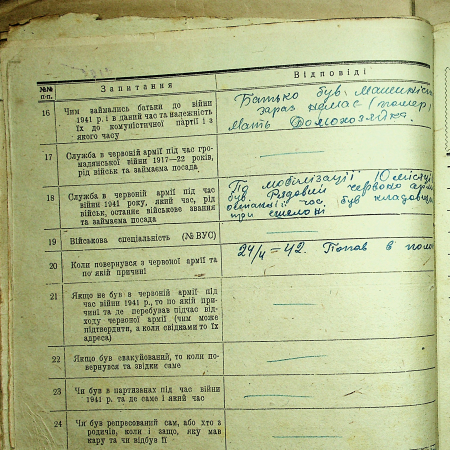 №№ п-п.
Запитання
Відповіді
16
Чим займались батьки до війни
1941 р. і в даний час та належність
їх до комуністичної партії і з
якого часу
Батько був машиніст
зараз немає (помер)
Мать Домохозяйка.
17
Служба в червоній армії під час гро-
мадянської війни 1917—22 років,
рід військ та займаєма посада
18
Служба в червоній армії під час
війни 1941 року, який час, рід
військ, останнє військове звання
та займаєма посада
По мобілізації 10 місяців
був. Рядовий червоно арм
останній час, був кладовщ
при
19
Військова спеціальність (№ ВУС)
20
Коли повернувся з червоної армії та
по якій причині
24/4 = 42. Попав в поло
21
Якщо не був в червоній армії під
час війни 1941 р., то по якій при-
чині та де перебував підчас від-
ходу червоної армії (чим може
підтвердити, а коли свідками то їх
адреса)
22
Якщо був евакуйований, то коли по-
вернувся та звідки саме
23
Чи був в партизанах під час війни
1941 р. та де саме і який час
24
Чи був репресований сам, або хто з
родичів, коли і защо, яку мав
кару та чи відбув її